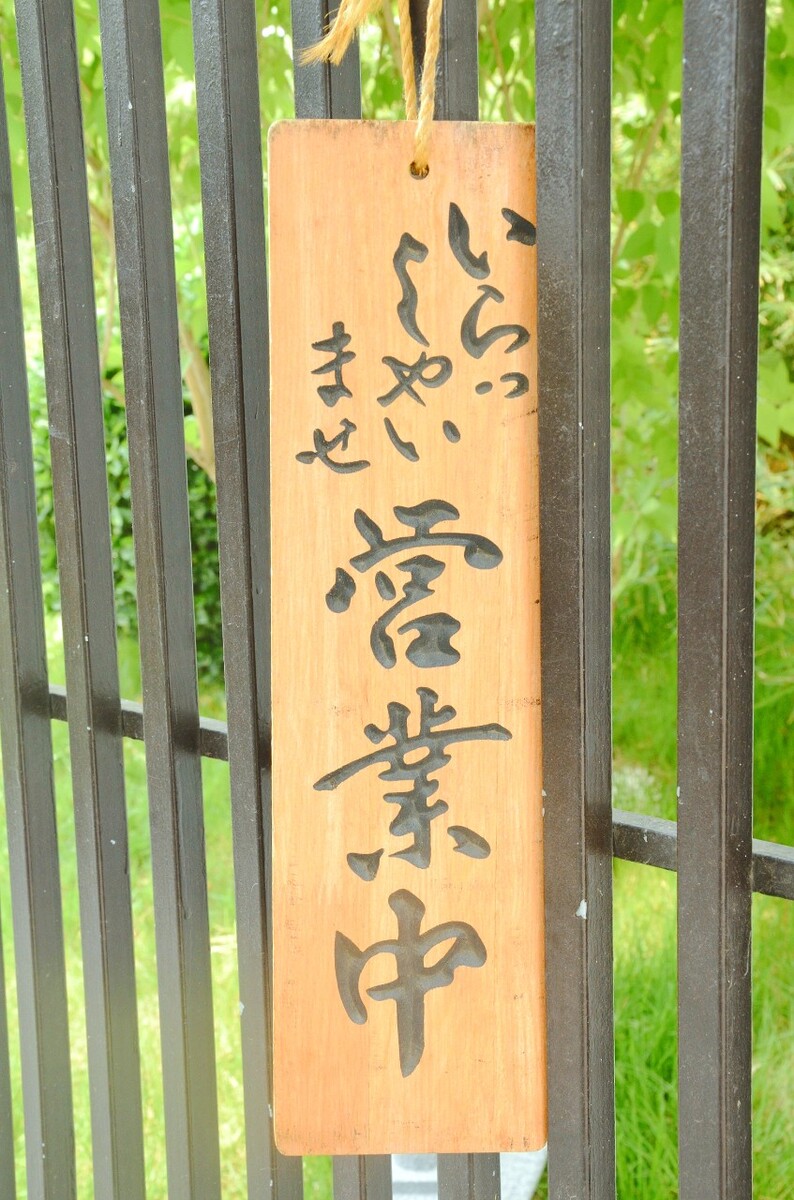 いらっ
しやい
ませ
営業中